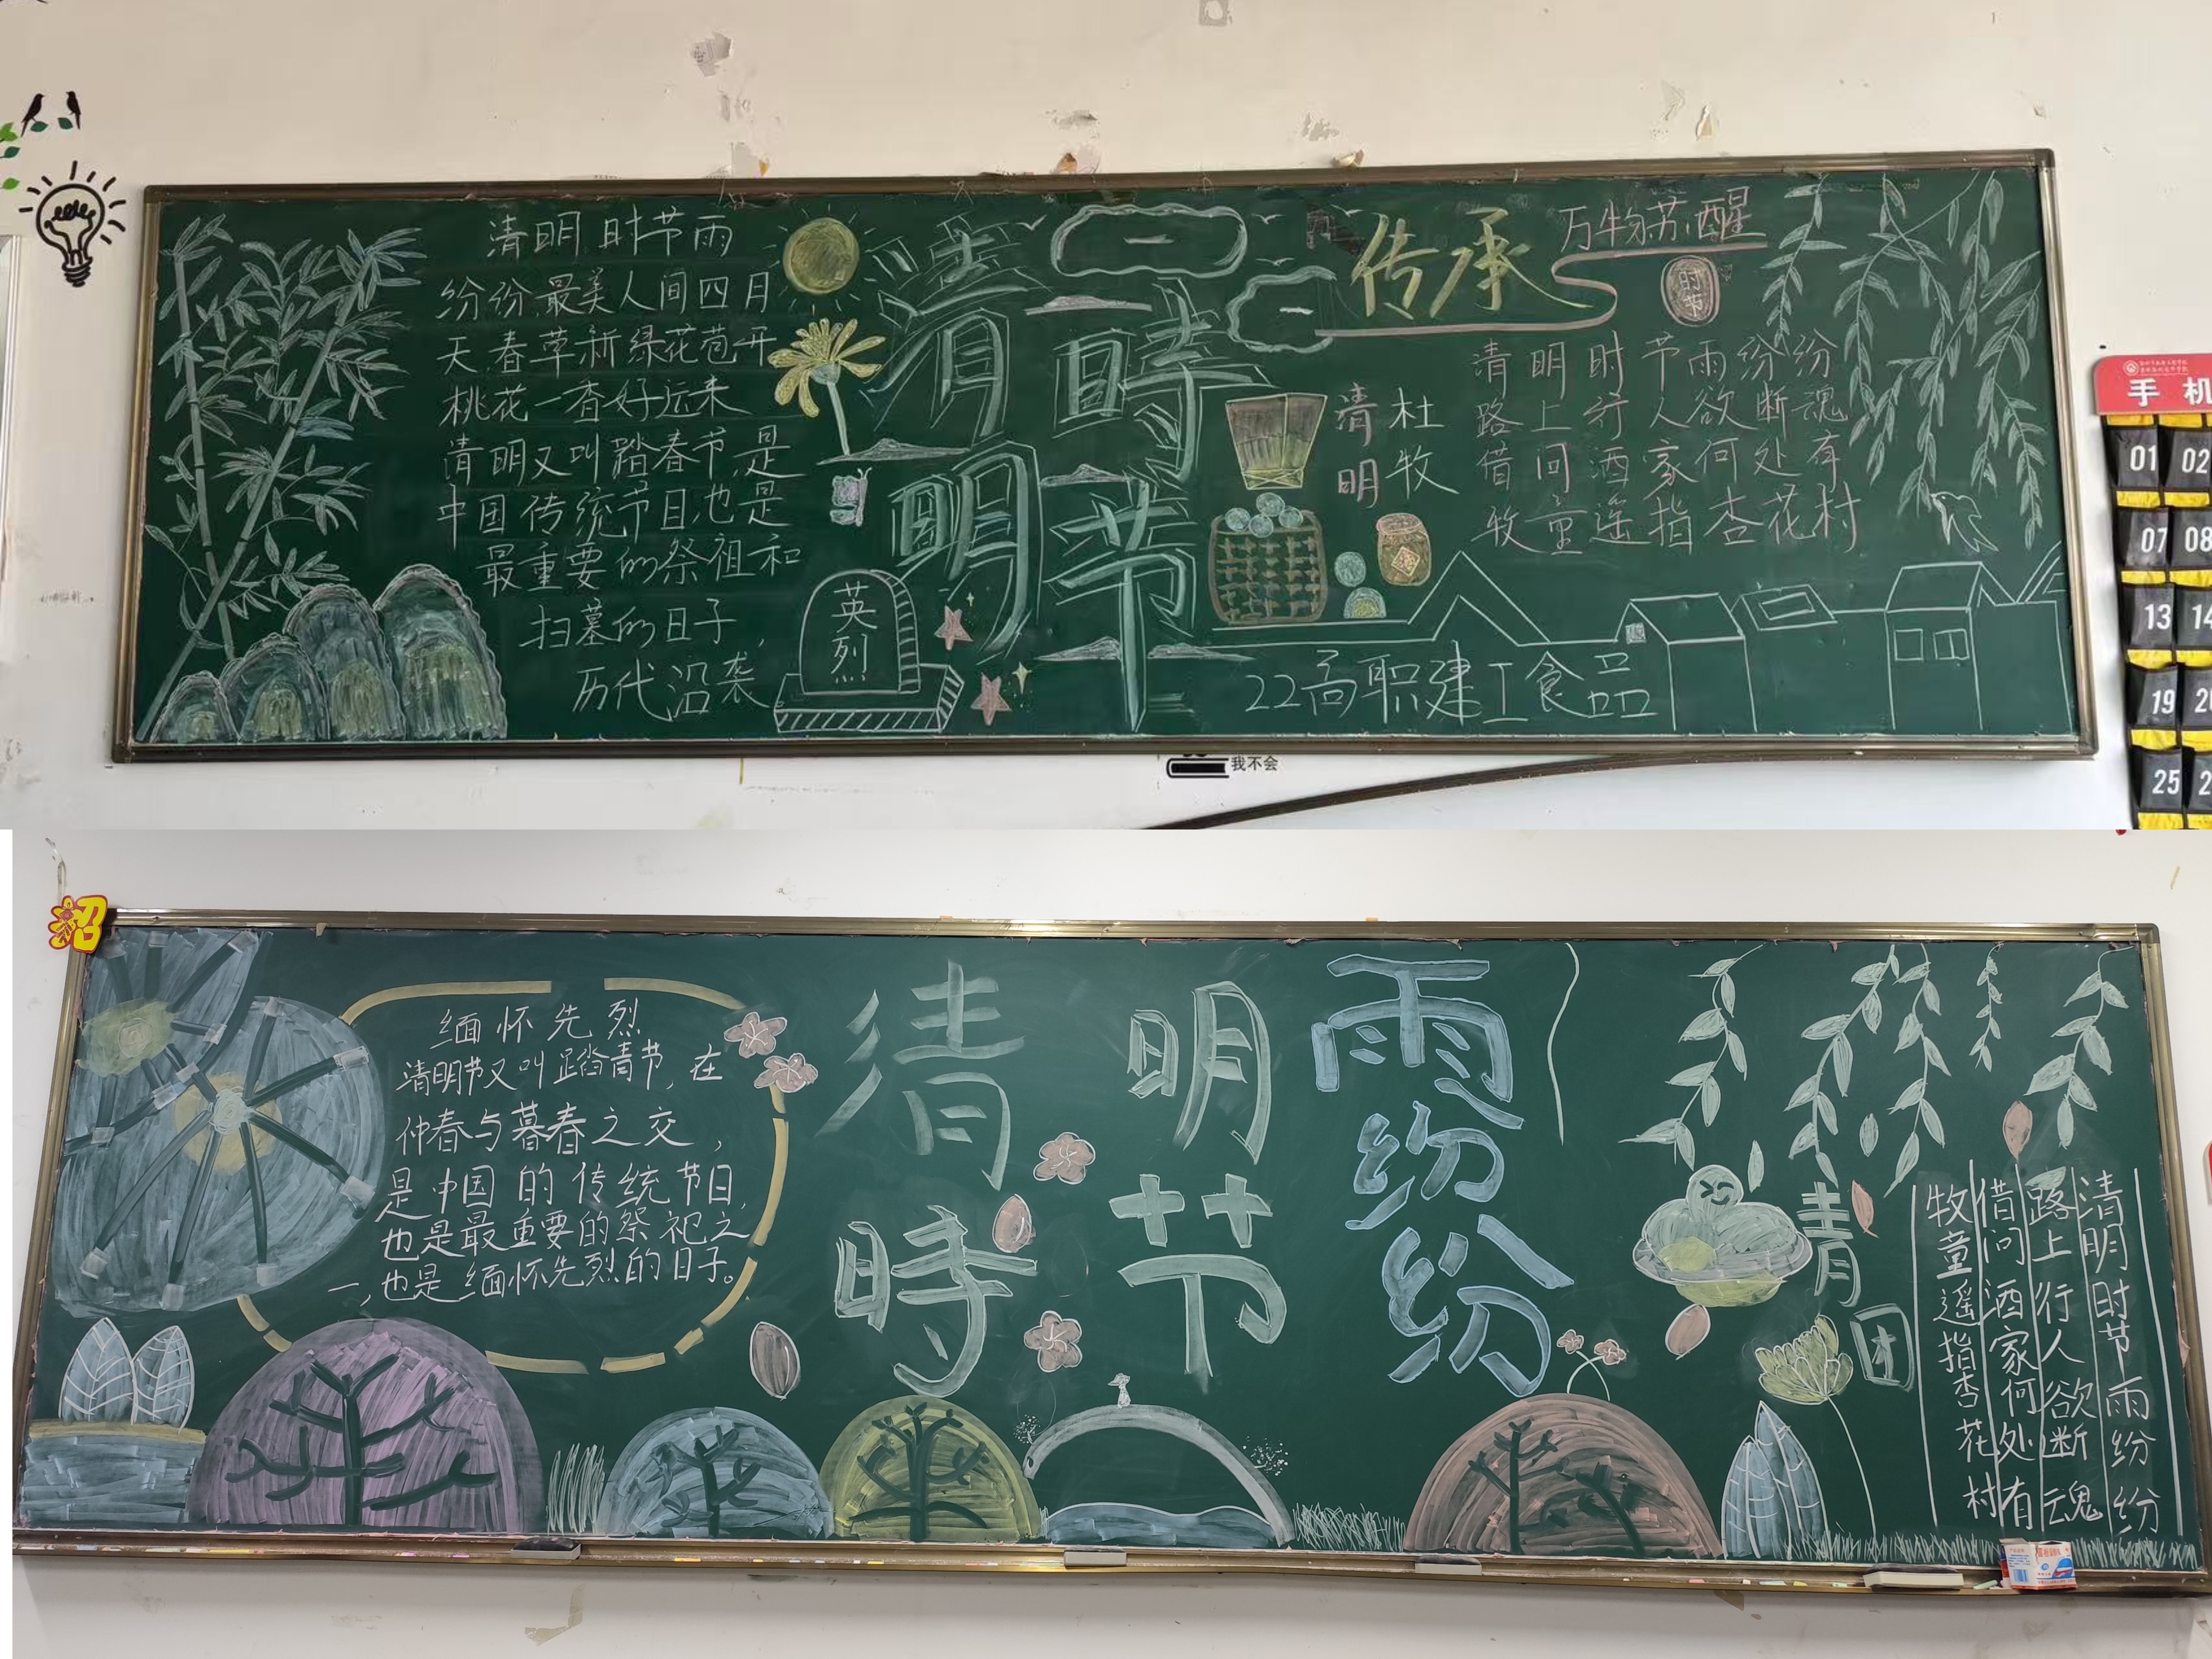 清明时节雨
纷纷最美人间四月
天春草新绿花苞开
桃花一香好运来
清明又叫踏春节,是
中国传统节日也是
最重要的祭祖和
扫墓的日子,
历代沿袭。
英烈
清明
時节
传承
万物苏醒
时节
清明
杜牧
清明时节雨纷纷
路上行人欲断魂
借问酒家何处有
牧童遥指杏花村
22高职建工食品
手机
01 02
07 08
13 14
19
25
我不会
缅怀先烈
清明节又叫踏青节,在
仲春与暮春之交,
是中国的传统节日,
也是最重要的祭祀之
一,也是缅怀先烈的日子。
清明
時节
雨纷纷
青团
清明时节雨纷纷
路上行人欲断魂
借问酒家何处有
牧童遥指杏花村